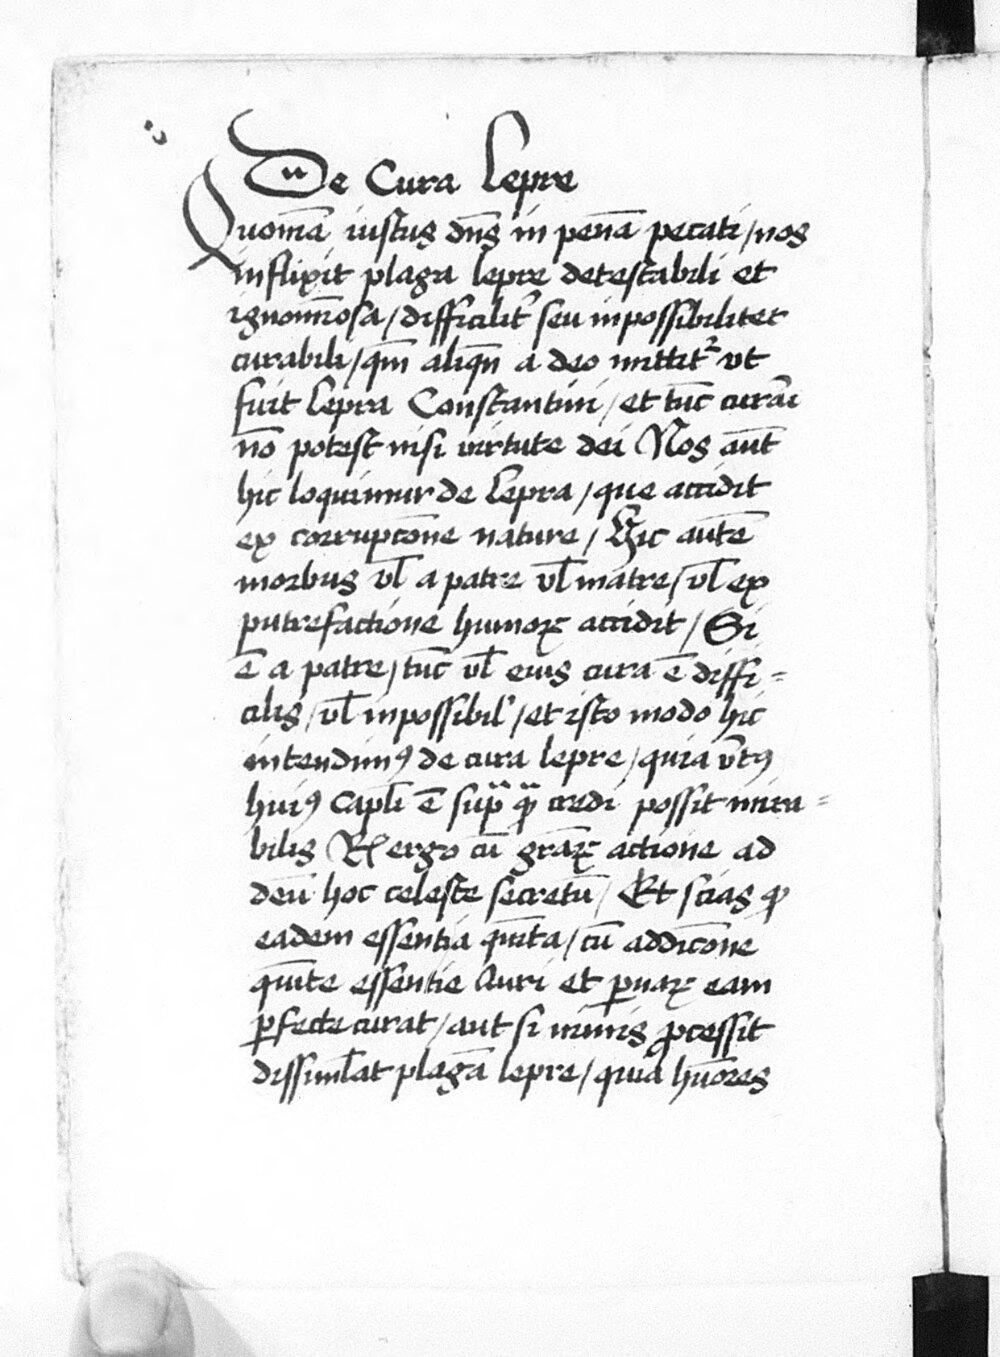 De Cura lepre
Quoniā iustus dn̄s in penā peccati / nos
inflixit plaga lepre detestabili et
ignomīosa / difficilit̉ seu inpossibiliter
curabili / qm̄ aliqn̄ a deo mittit᷑ vt
fuit lepra Constantini / et tūc curari
nō potest nisi virtute dei Nos aūt
hic loquimur de lepra / que accidit
ex corrupcōne nature / Hic autē
morbus vl̄ a patre vl̄ matre / vl̄ ex
putrefactione humoꝝ accidit / Si
ē a patre / tūc vl̄ eius cura ē diffi=
cilis / vl̄ inpossibil' / et isto modo hic
intendimꝰ de cura lepre / quia v̄tꝰ
huiꝰ capl̄i ē sup̄ qꝫ credi possit mira=
bilis R͡ ergo cū gr̄aꝝ actione ad
deū hoc celeste secretū / Et scias ꝙ
eadem essentia qūita / cū addicōne
qūite essentie Auri et ꝑlaꝝ eam
ꝑfecte curat / aut si nimis ꝓcessit
dissiml̄at plagā lepre / quia hūores